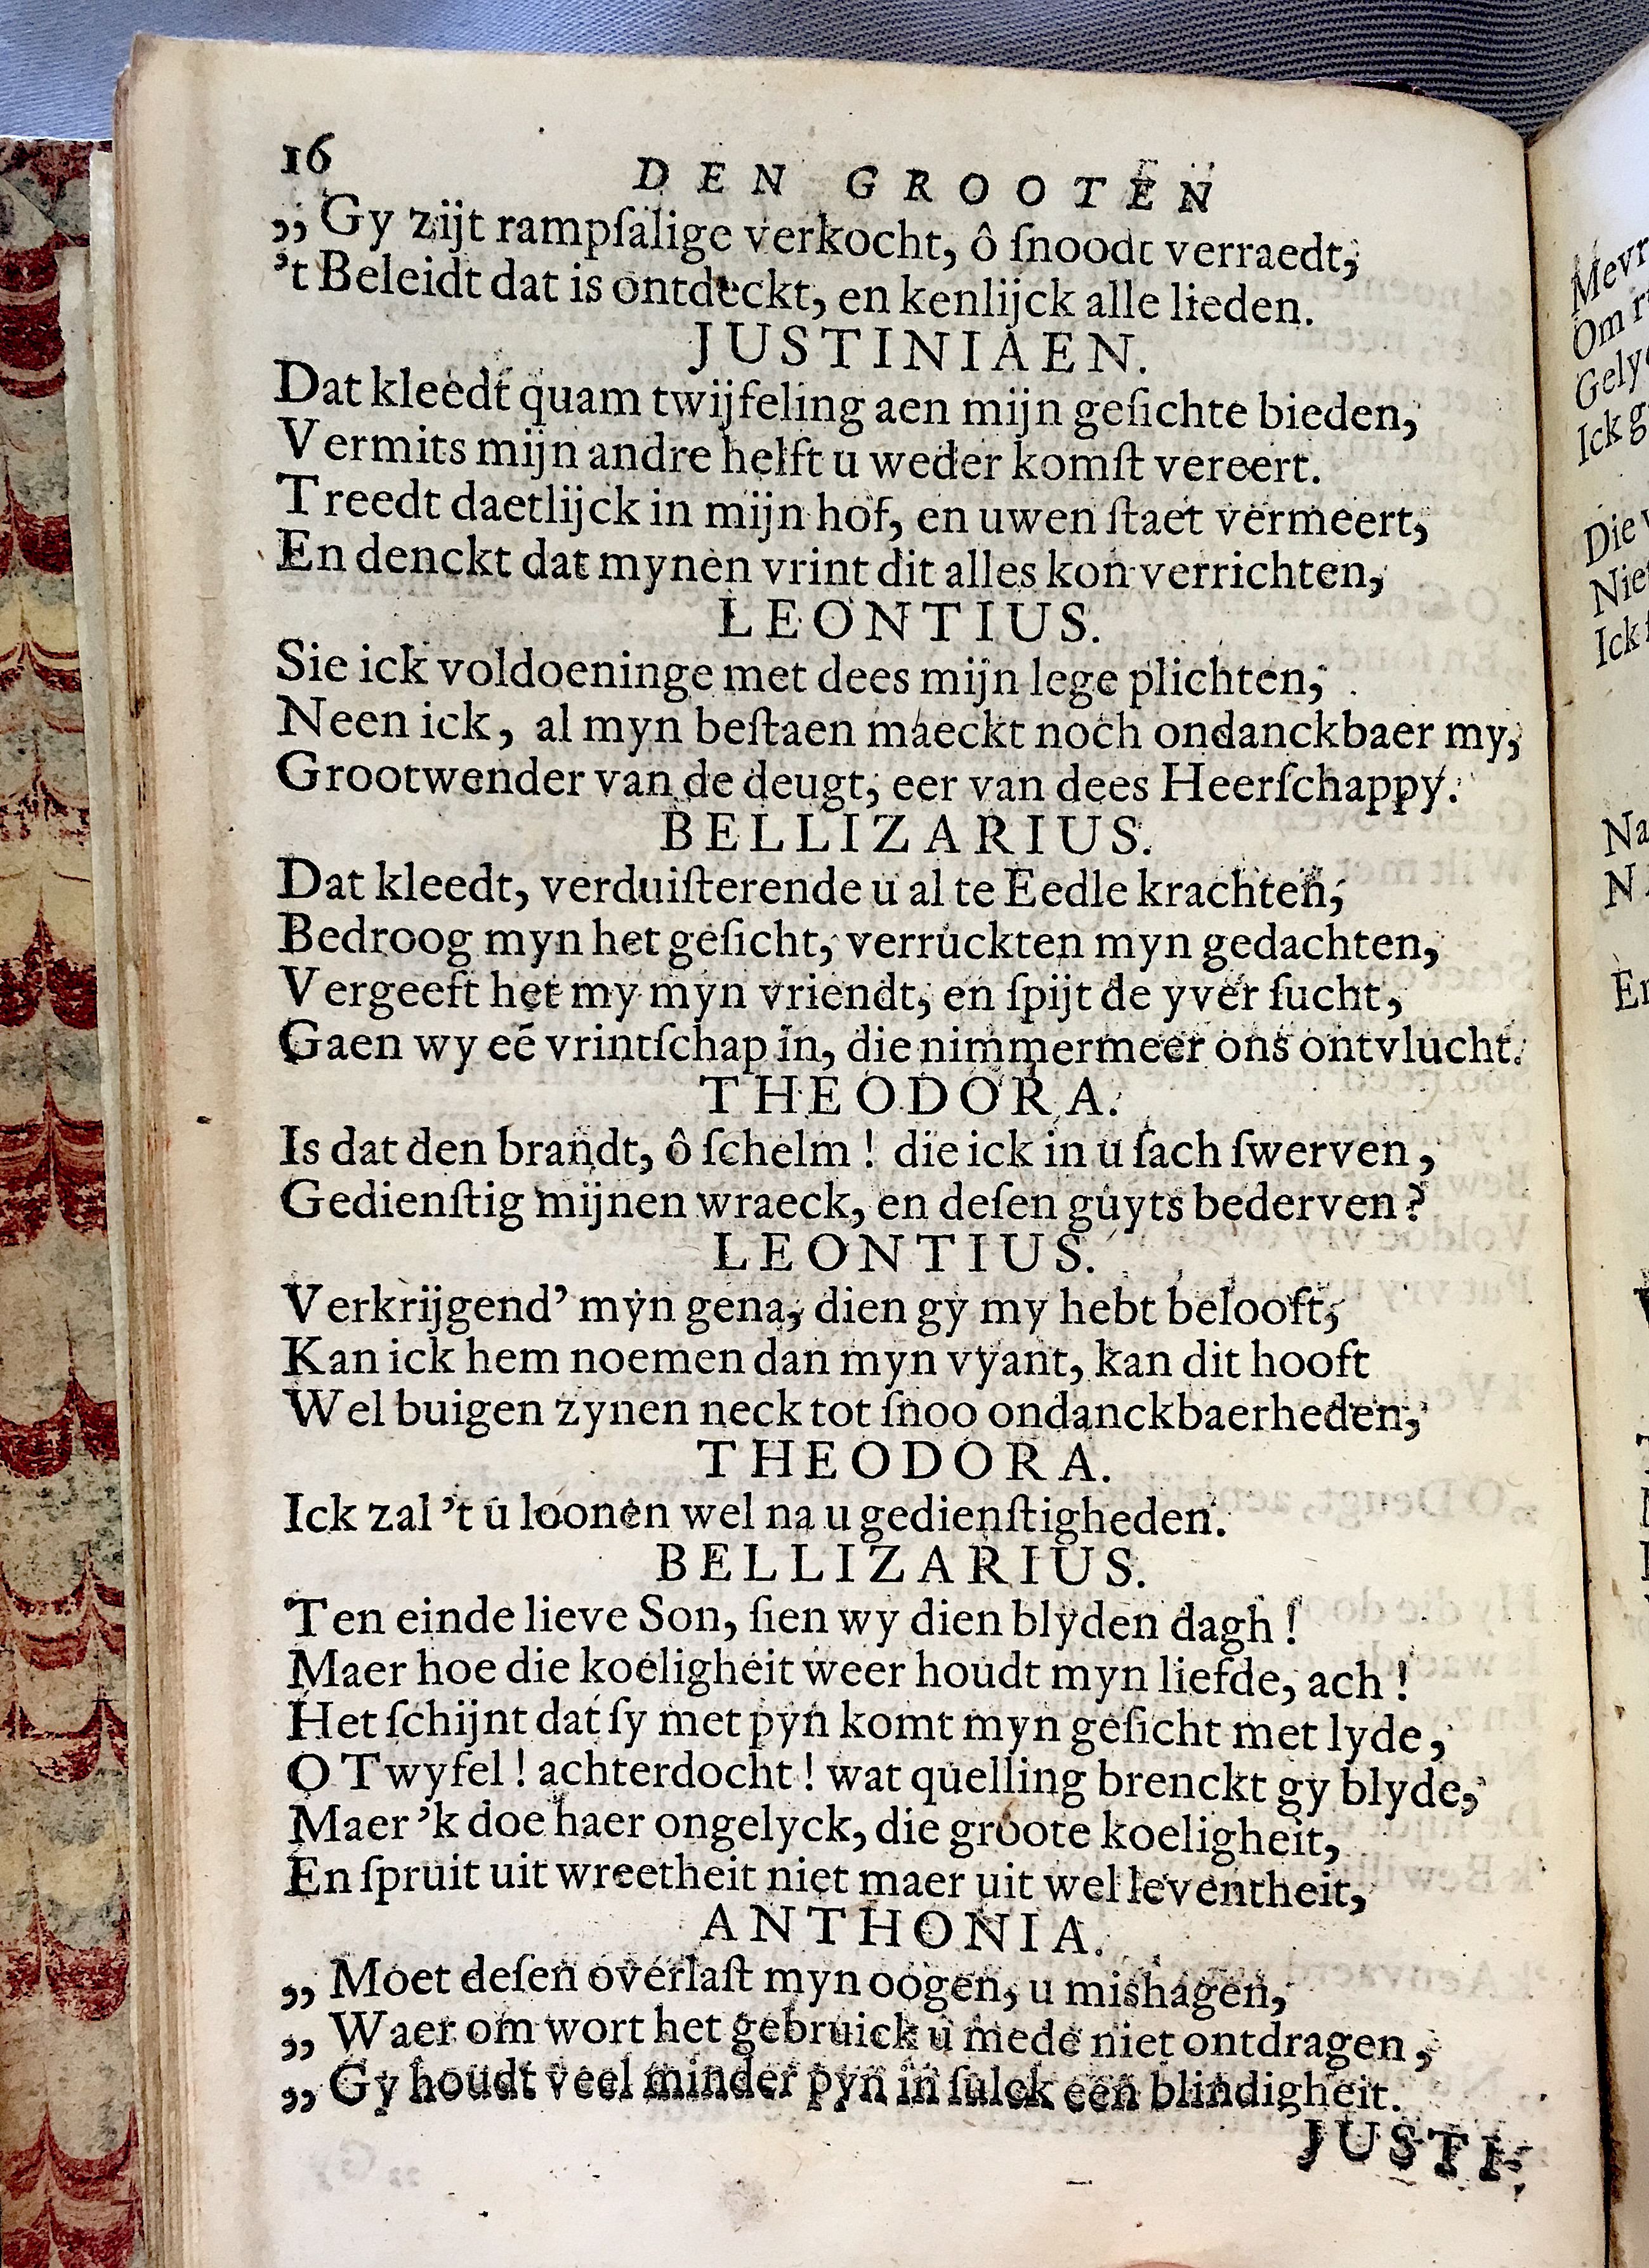 16
DEN GROOTEN
„ Gy zijt rampſalige verkocht, ô ſnoodt verraedt,
't Beleidt dat is ontdeckt, en kenlijck alle lieden.
JUSTINIAEN.
Dat kleedt quam twijfeling aen mijn geſichte bieden,
Vermits mijn andre helft u weder komſt vereert.
Treedt daetlijck in mijn hof, en uwen ſtaet vermeert,
En denckt dat mynen vrint dit alles kon verrichten,
LEONTIUS.
Sie ick voldoeninge met dees mijn lege plichten,
Neen ick, al myn beſtaen maeckt noch ondanckbaer my,
Grootwender van de deugt, eer van dees Heerſchappy.
BELLIZARIUS.
Dat kleedt, verduiſterende u al te Eedle krachten,
Bedroog myn het geſicht, verruckten myn gedachten,
Vergeeft het my myn vriendt, en ſpijt de yver ſucht,
Gaen wy eē vrintſchap in, die nimmermeer ons ontvlucht.
THEODORA.
Is dat den brandt, ô ſchelm ! die ick in u ſach ſwerven,
Gedienſtig mijnen wraeck, en deſen guyts bederven?
LEONTIUS.
Verkrijgend' myn gena, dien gy my hebt belooft,
Kan ick hem noemen dan myn vyant, kan dit hooft
Wel buigen zynen neck tot ſnoo ondanckbaerheden,
THEODORA.
Ick zal 't u loonen wel na u gedienſtigheden.
BELLIZARIUS.
Ten einde lieve Son, ſien wy dien blyden dagh !
Maer hoe die koeligheit weer houdt myn liefde, ach !
Het ſchijnt dat ſy met pyn komt myn geſicht met lyde,
O Twyfel ! achterdocht ! wat quelling brenckt gy blyde,
Maer 'k doe haer ongelyck, die groote koeligheit,
En ſpruit uit wreetheit niet maer uit wel leventheit,
ANTHONIA.
„ Moet deſen overlaſt myn oogen, u mishagen,
„ Waer om wort het gebruick u mede niet ontdragen,
„ Gy houdt veel minder pyn in ſulck een blindigheit.
JUSTI-
Mevr
Om r
Gely
Ick g
Die
Nie
Ick
Na
N
En